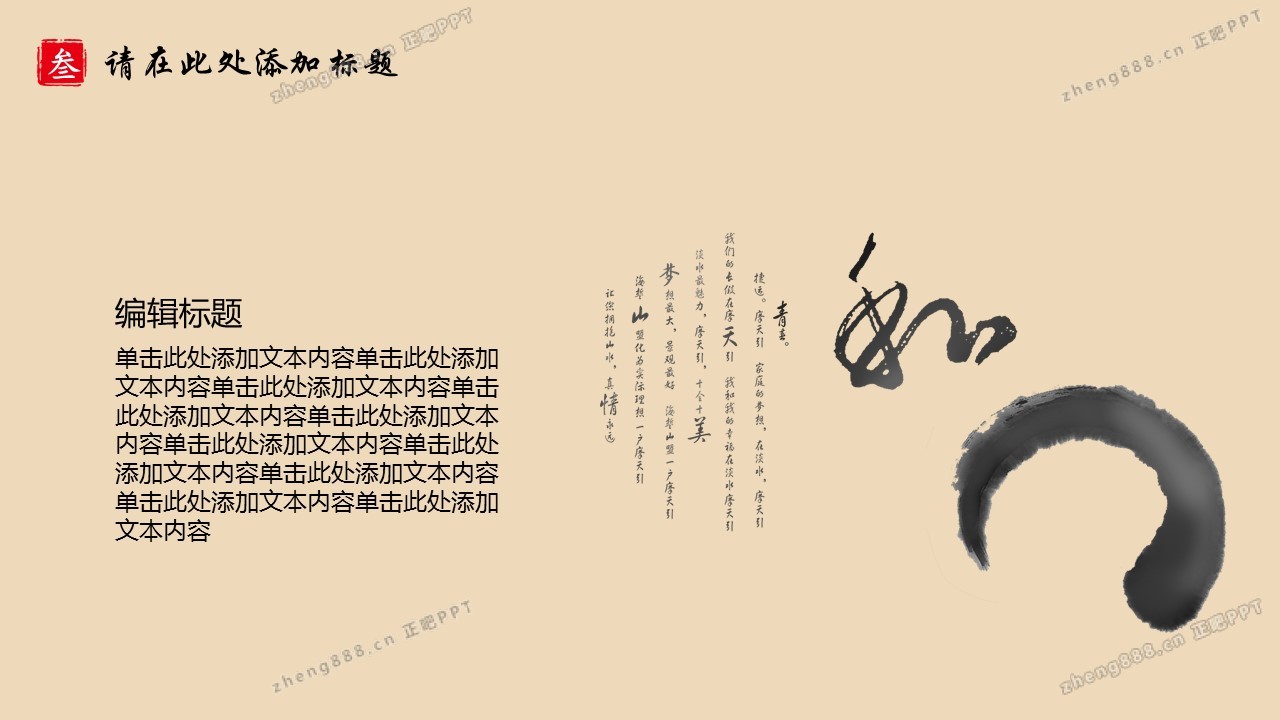 叁
请在此处添加标题
zheng888.cn 正吧PPT
zheng888.cn 正吧PPT
编辑标题
单击此处添加文本内容单击此处添加
文本内容单击此处添加文本内容单击
此处添加文本内容单击此处添加文本
内容单击此处添加文本内容单击此处
添加文本内容单击此处添加文本内容
单击此处添加文本内容单击此处添加
文本内容
和
青春。
捷运。摩天引 家庭的梦想，在淡水，摩天引
我们的在摩天引 我和我的幸福在淡水摩天引
淡水最魅力，摩天引，十全十美
梦想最大，景观最好 海誓山盟一户摩天引
海誓山盟化为实际理想一户摩天引
让你拥抱山水，真情永远
zheng888.cn 正吧PPT
zheng888.cn 正吧PPT